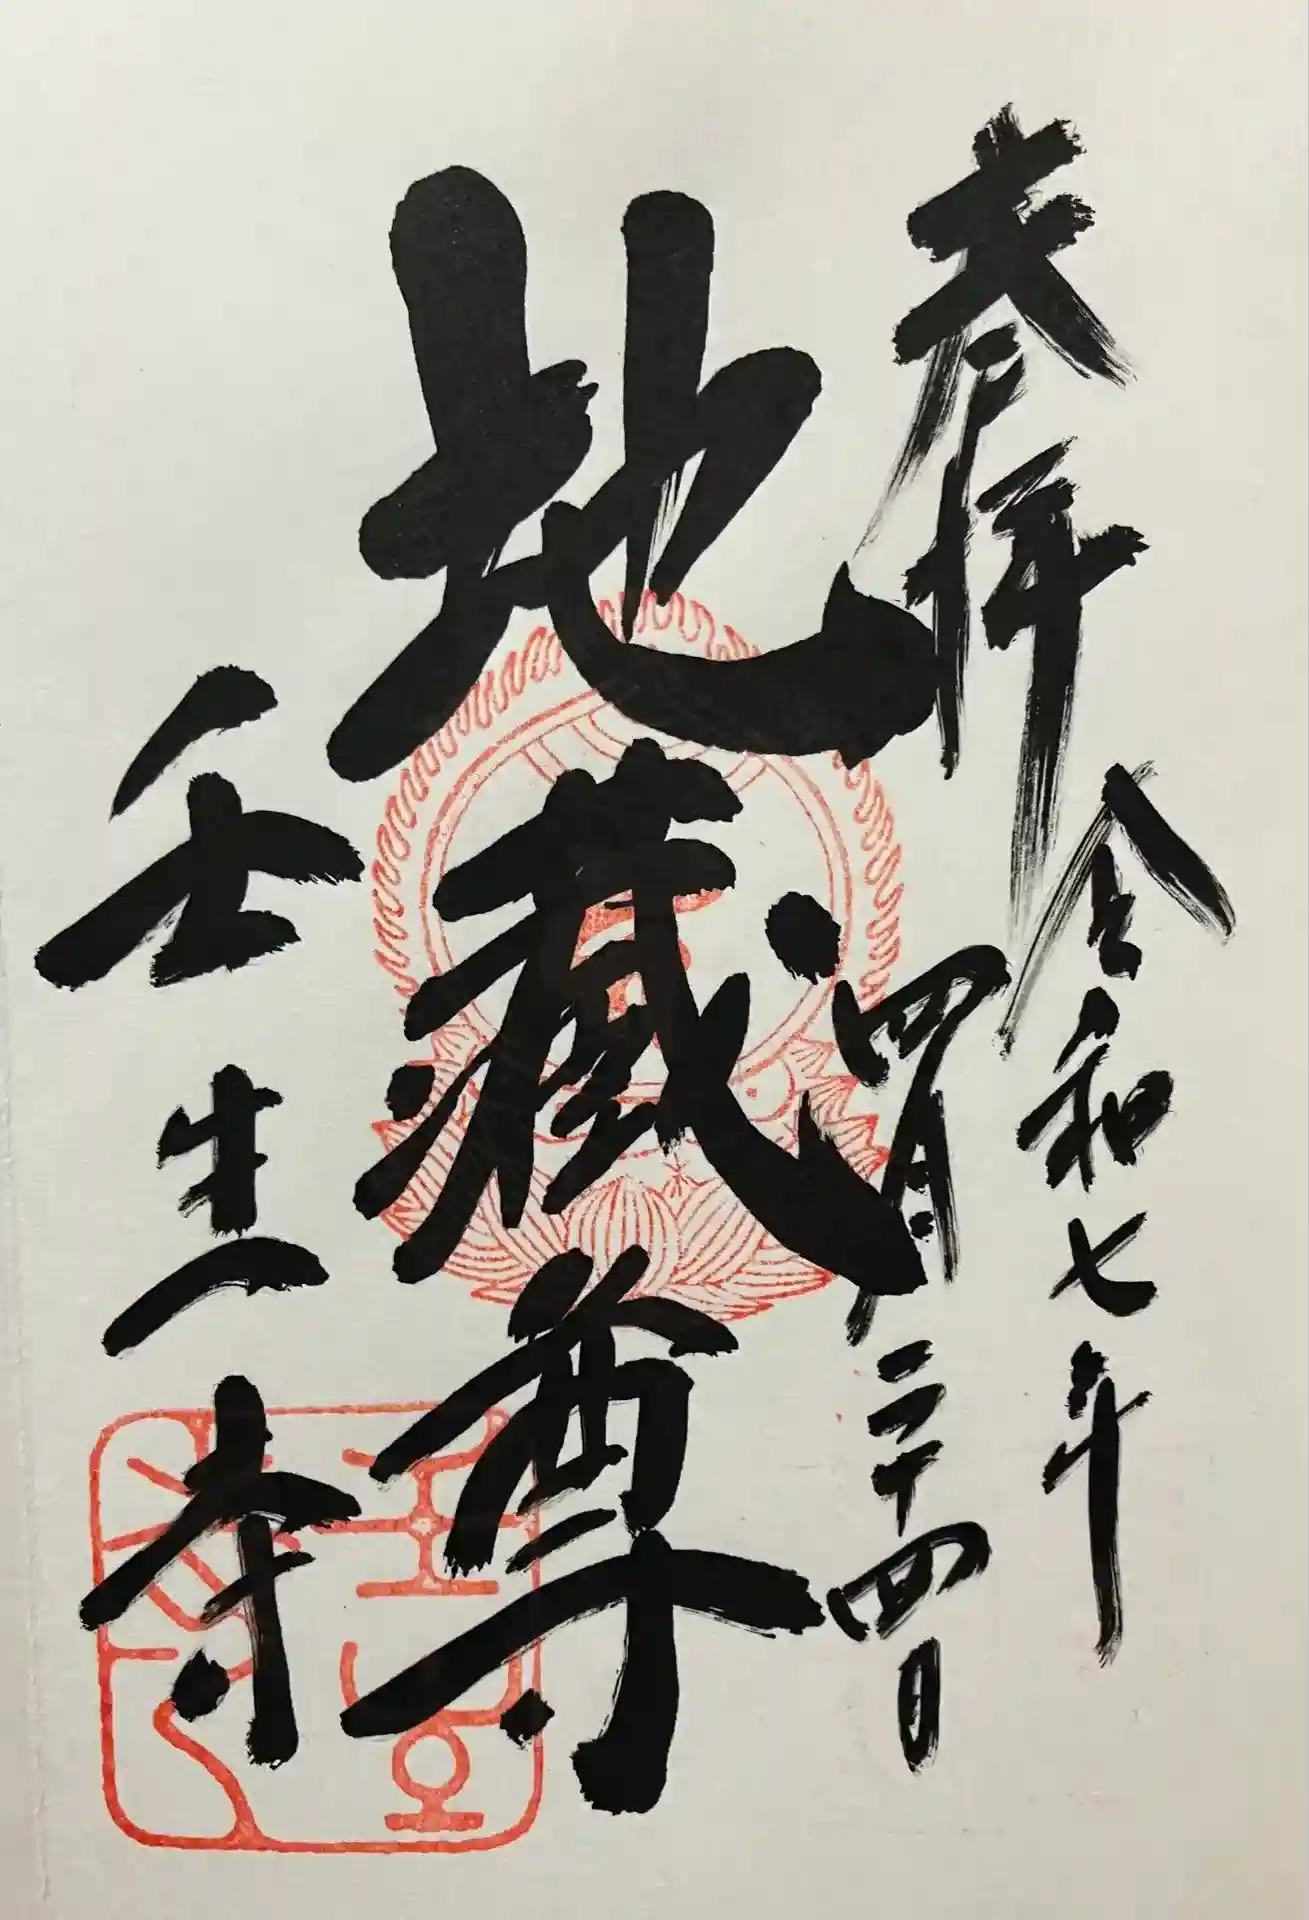 奉拝 令和七年
四月二十四日
地藏尊
壬生寺